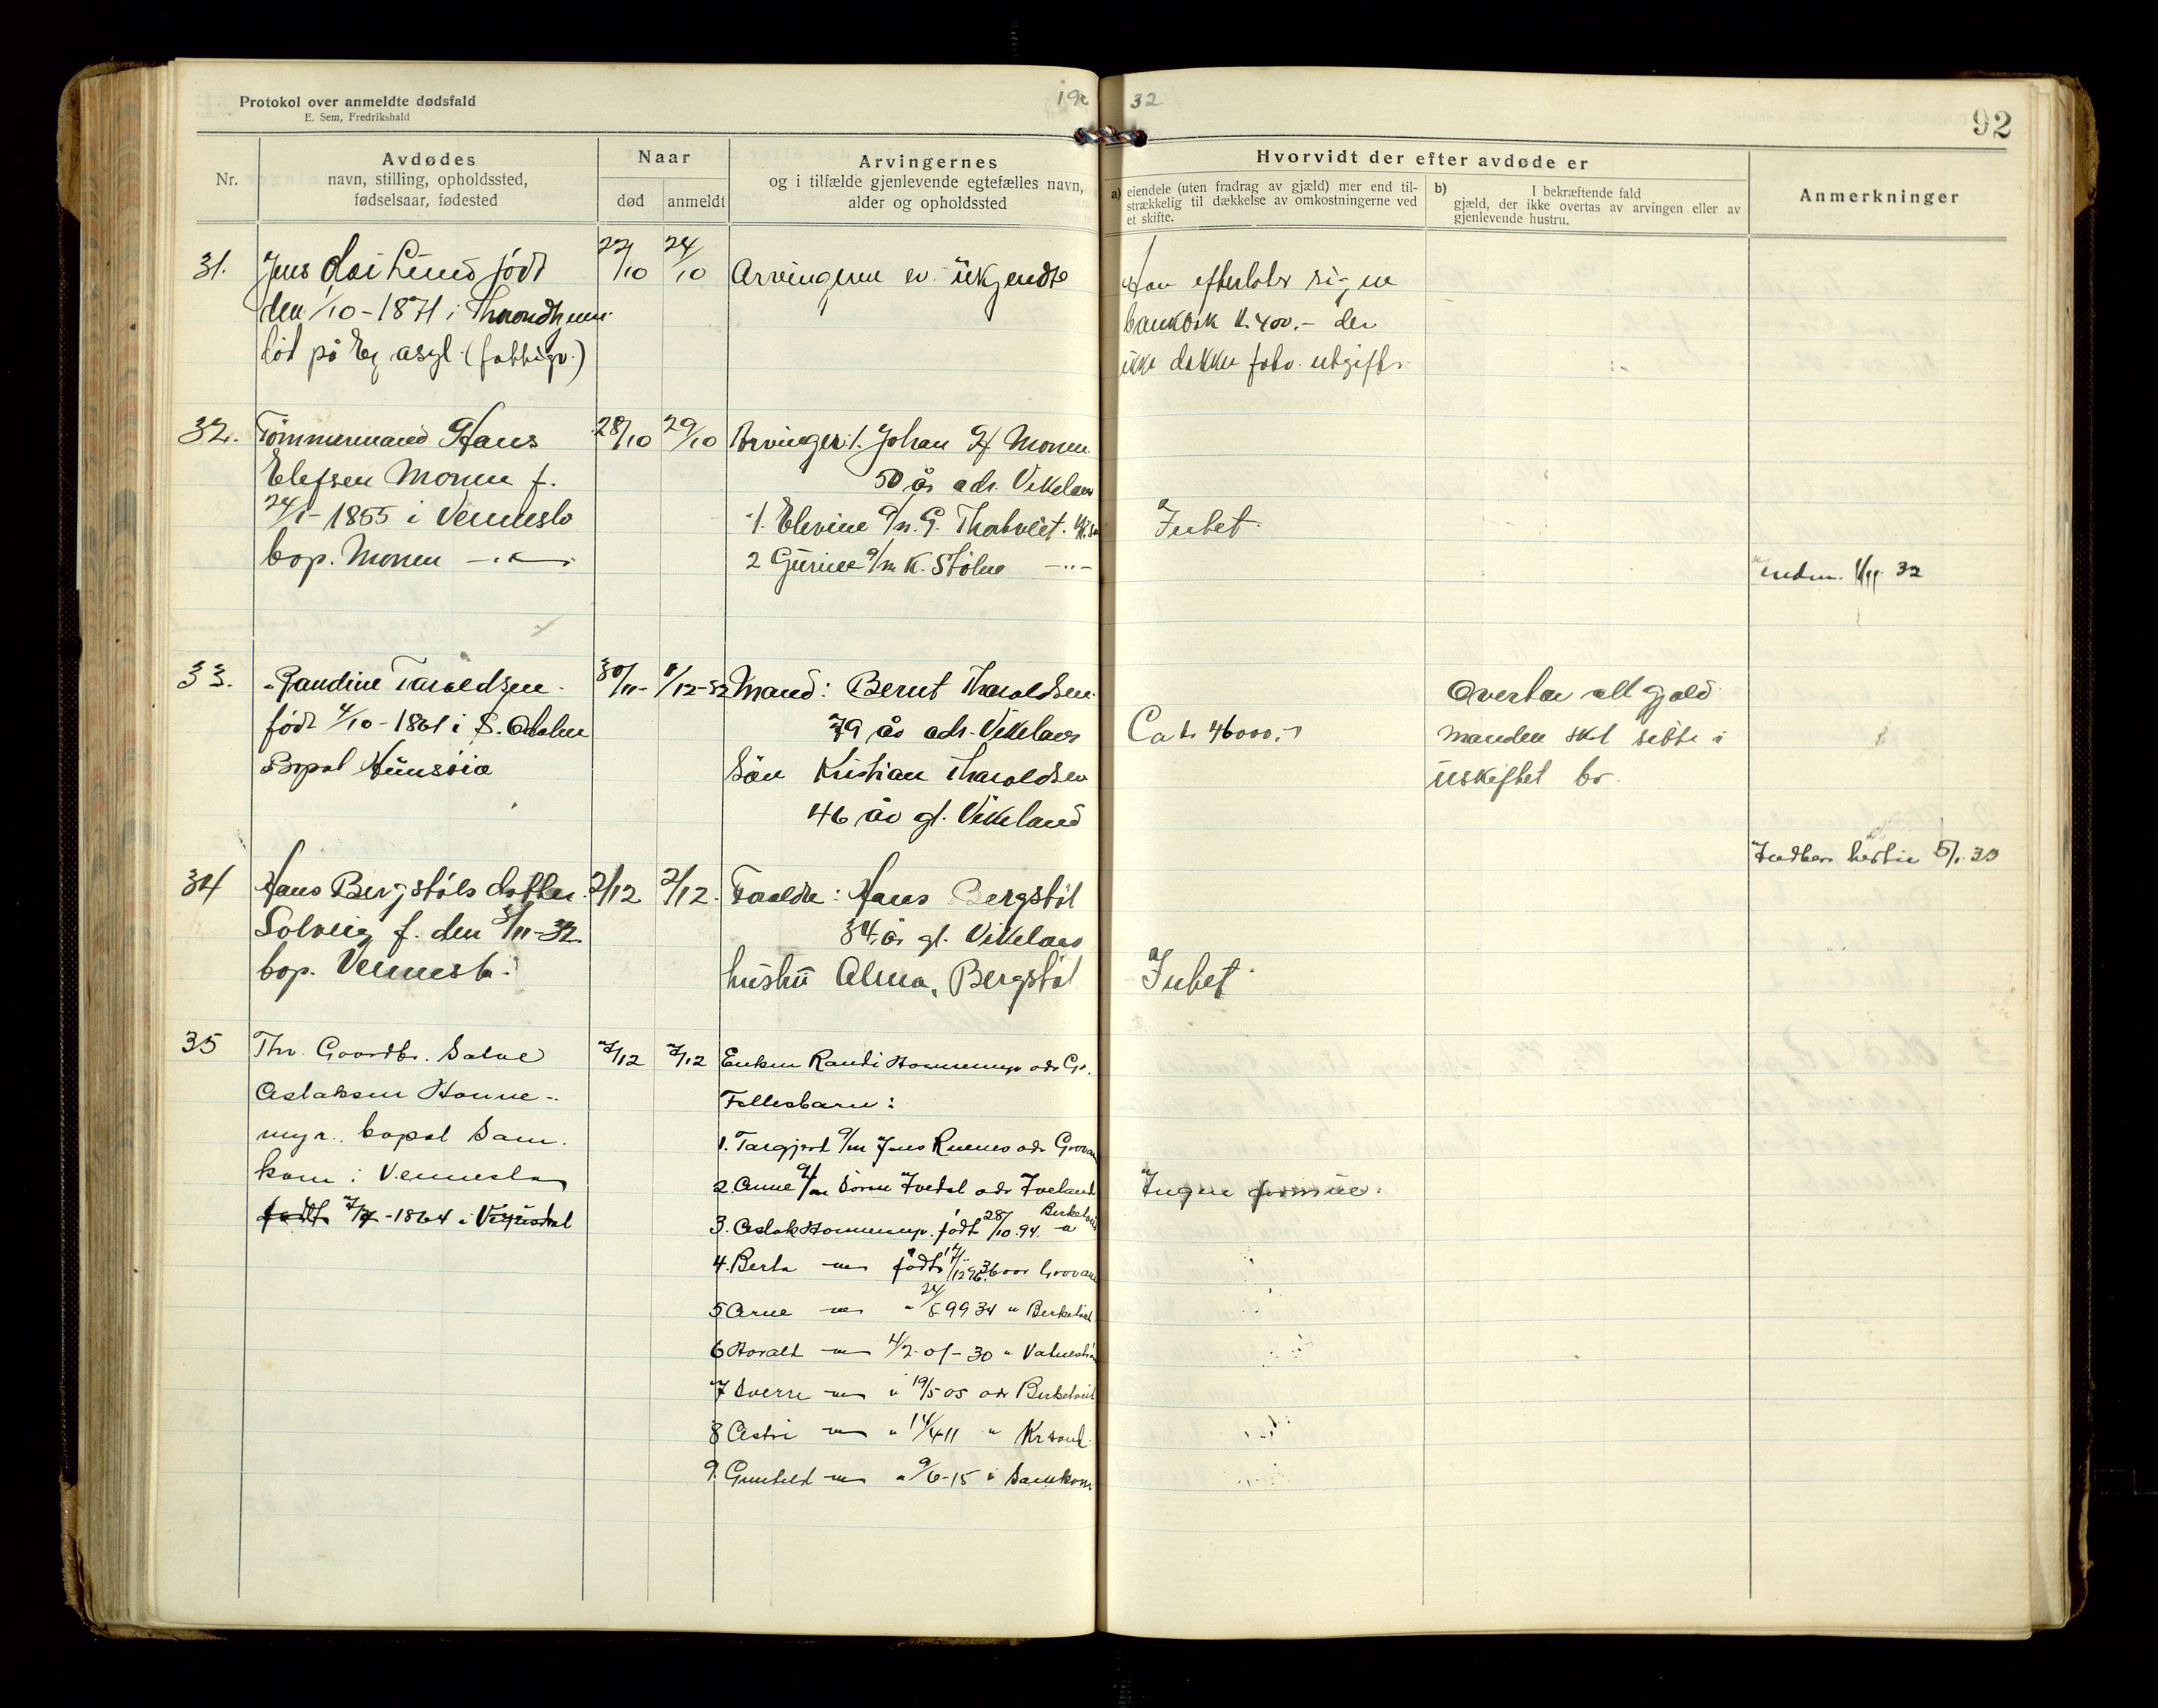 Protokol over anmeldte dødsfald
E. Sem, Fredrikshald
19
32
92
Nr.
Avdødes
navn, stilling, opholdssted,
fødselsaar, fødested
Naar
død
anmeldt
Arvingernes
og i tilfælde gjenlevende egtefælles navn,
alder og opholdssted
Hvorvidt der efter avdøde er
a) eiendele (uten fradrag av gjæld) mer end til-
strækkelig til dækkelse av omkostningerne ved
et skifte.
b) I bekræftende fald
gjæld, der ikke overtas av arvingen eller av
gjenlevende hustru.
Anmerkninger
31. Jens Lund født 22/10 24/10 Arvingerne er ukjendte
den 1/10-1871 i Throndhjem
død på Eg asyl. (fattigv.)
Han efterlater sig en
bankbok k. 400.- der
ikke dekker forv. utgifter.
32. Tømmermand Hans 28/10 29/10 Arvinger: 1. Johan H Monen
Elefsen Monen f. 50 år adr. Vikeland
24/1-1855 i Vennesla 1. Elevine g/m. G. Thortveit. Intet.
bop. Monen -"- 2 Gurine g/m K. Stølen -"-
1/11 32
33. Randine Taraldsen 30/11- 1/12-32 Mand: Bernt Tharaldsen
født 4/10-1861 i S. Odalen 79 år adr. Vikeland
Bopal Hunsøia Søn Kristian Tharaldsen
46 år gl. Vikeland
Ca k. 46000,-
Overtar all gjæld
manden skal sitte i
uskiftet bo.
5/1.33
34 Hans Bergstøls datter 2/12 2/12. Forældre: Hans Bergstøl
Solveig f. den 5/11-32. 34 år gl. Vikeland
bop. Vennesla. hustru Alma Bergstøl Intet
35 Fhv. Gaardbr. Salve 7/12 7/12 Enken Randi Honnemyr adr Gr.
Aslaksen Honne-
myr. bopal Sam.
kom i Vennesla
født 7/7-1864 i
Fellesbarn:
1. Targjerd g/m Jens Ruenes adr Grovan
2. Anne g/m Søren Ivedal adr Iveland
3. Aslak Honnemyr. født 28/10.94. Birketveit
4. Berta født 12/12 96. 36 aar Grovane
5 Arne " 24/8 99 34 " Birketveit
6 Harald 4/2-01-30 " Vatnestrøm
7 Sverre " 19/5 05 adr Birketveit
8 Astri " 14/4 11 " Krsand
9. Gunhild " 9/6-15 " Samkom
Ingen formue.